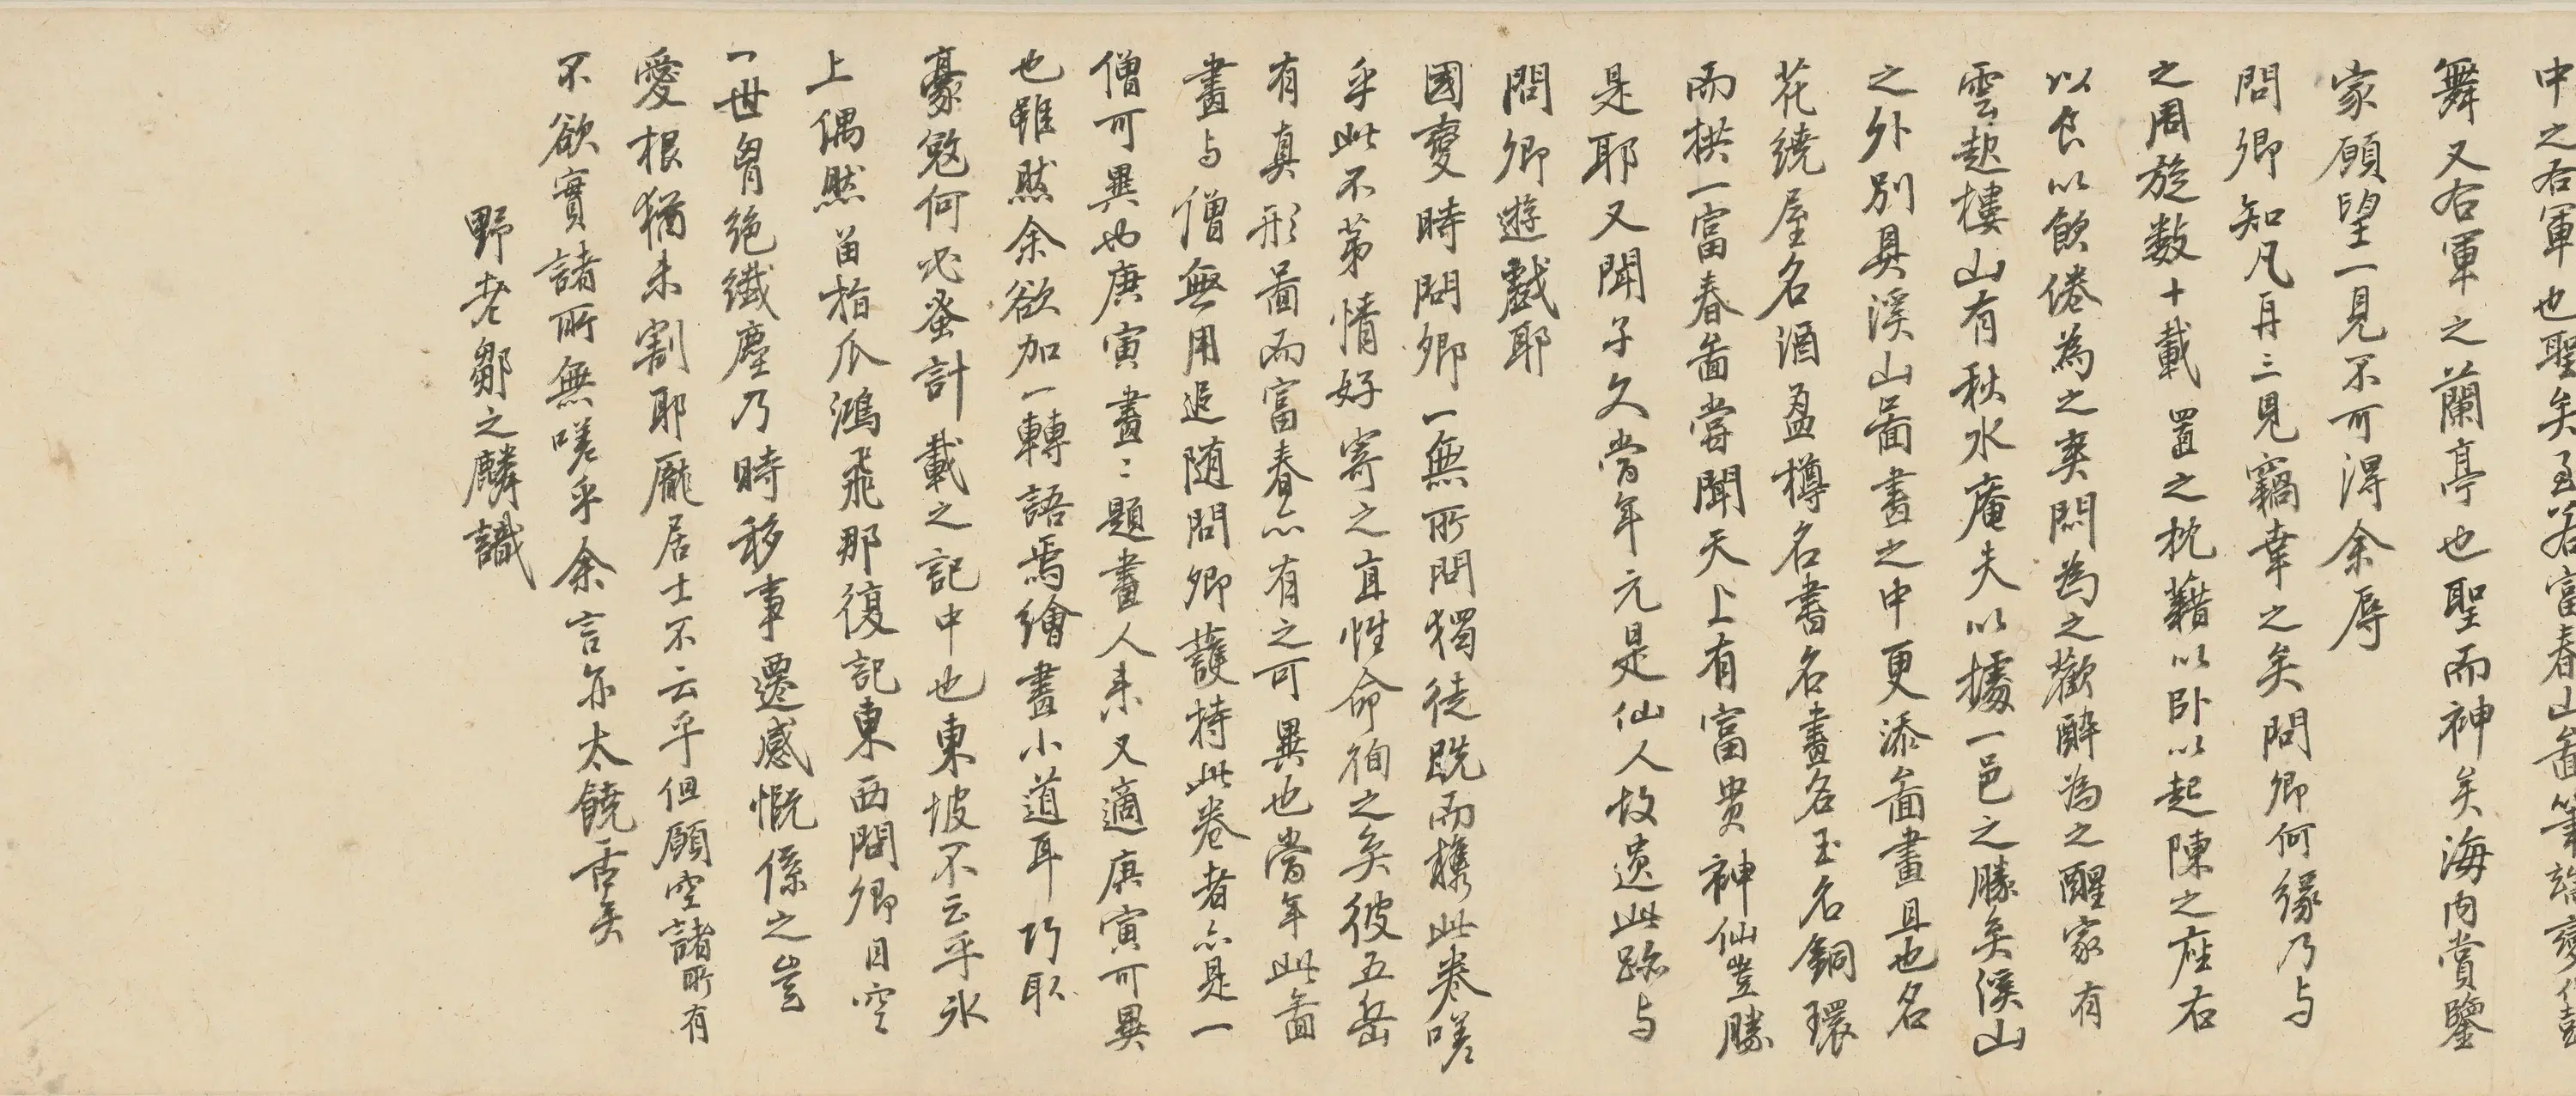 中之右軍也聖矣至若富春山啚筆端變化鼓
舞又右軍之蘭亭也聖而神矣海内賞鑒
家願望一見不可得余辱
問卿知凡再三見竊幸之矣問卿何緣乃与
之周旋数十載置之枕藉以卧以起陳之座右
以食以飲倦為之爽悶為之歡醉為之醒家有
雲起樓山有秋水庵夫以據一邑之勝矣溪山
之外別具溪山啚畫之中更添啚畫且也名
花繞屋名酒盈樽名書名畫名玉名銅環
而拱一富春啚嘗聞天上有富貴神仙豈勝
是耶又聞子久當年元是仙人故遺此跡与
問卿遊戲耶
國變時問卿一無所問獨徒跣而攜此卷嗟
乎此不第情好寄之直性命徇之矣彼五岳
有真形啚而富春亦有之可異也當年此啚
畫与僧無用追随問卿護持此卷者亦是一
僧可異也庚寅畫〻題畫人来又適庚寅可異
也雖然余欲加一轉語焉繪畫小道耳巧取
豪敚何必蚤計載之記中也東坡不云乎冰
上偶然留指爪鴻飛那復記東西問卿目空
一世胷絶纖塵乃時移事遷感慨係之豈
愛根猶未割耶龐居士不云乎但願空諸所有
不欲實諸所無嗟乎余言亦太饒舌矣
野老鄒之麟識